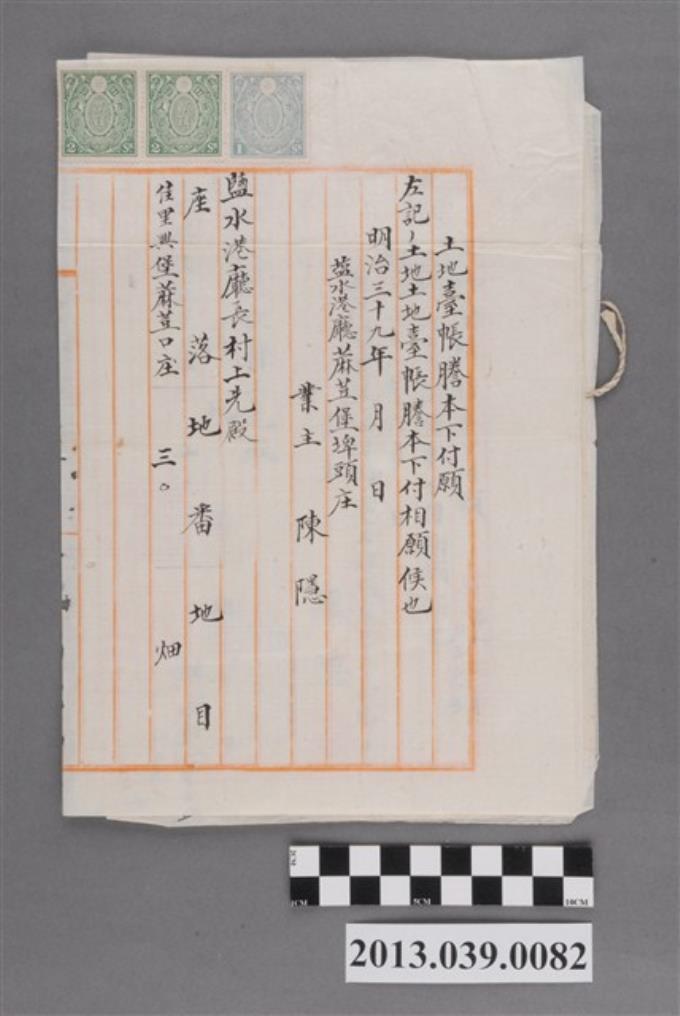 土地臺帳謄本下付願
左記ノ土地土地臺帳謄本下付相願候也
明治三十九年 月 日
塩水港廳蔴荳堡埤頭庄
業主 陳隱
鹽水港廳長村上先殿
座落 地番 地目
佳里興堡蔴荳口庄 三〇 畑
2 Sn
2 Sn
1 Sn
2CM
1CM 5CM 10CM
2013.039.0082